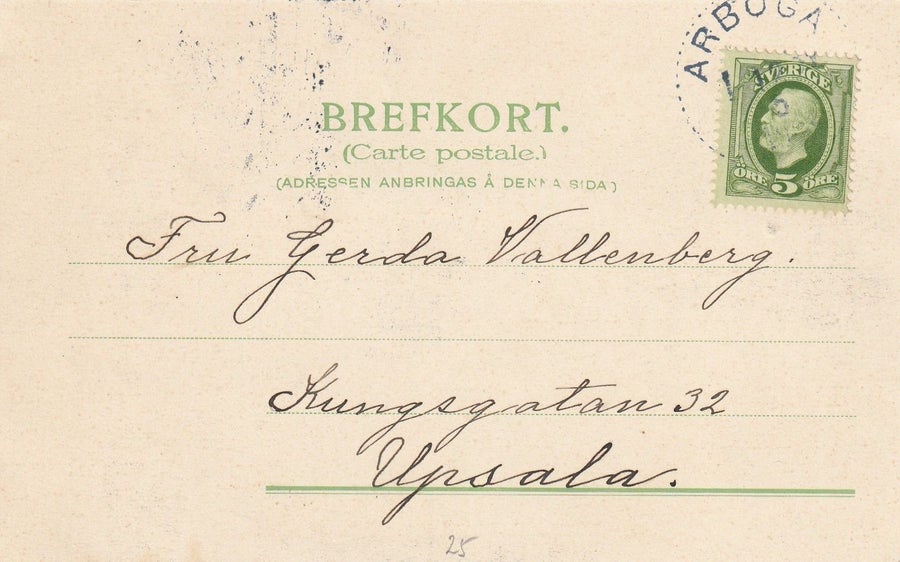 ARBOGA
SVERIGE
ÖRE 5 ÖRE
BREFKORT.
(Carte postale.)
(ADRESSEN ANBRINGAS Å DENNA SIDA)
Fru Gerda Vallenberg.
Kungsgatan 32
Upsala.
25